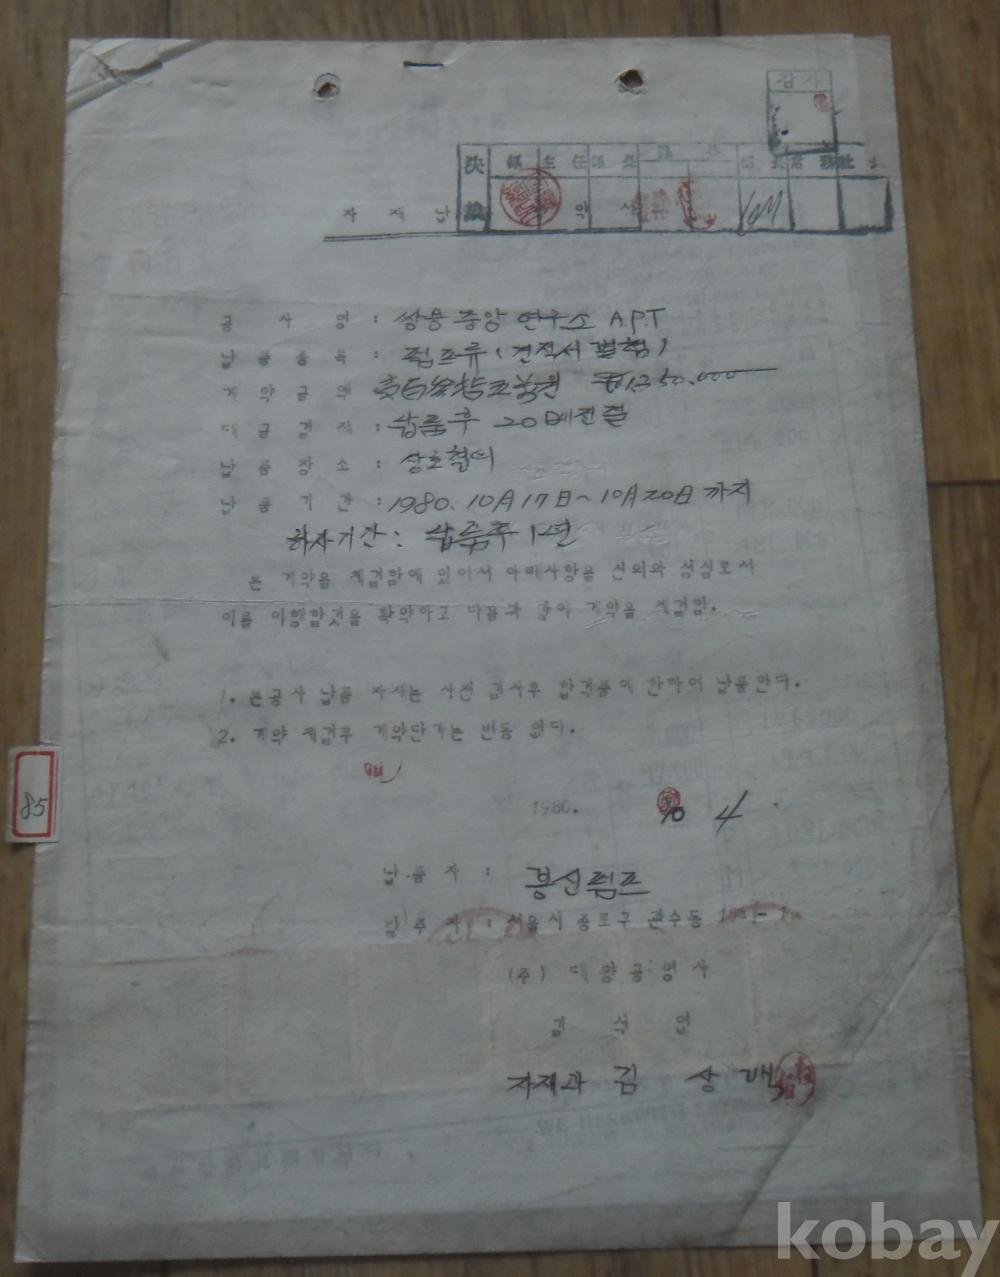 감사
決 係 主任 係長 課長 部長 常務 社長
裁
자재납 약 서
공사명 : 쌍용중앙연구소 A.P.T
납품품목 : 펌프류 (견적서 별첨)
계약금액 壹百參拾五萬원 ₩1350.000
대금결제 : 납품후 20日
납품장소 : 상호협의
납품기간 : 1980. 10月 17日 ~ 10月 20日 까지
하자기간 : 납품후 1년
본 계약을 체결함에 있어서 아래사항을 신의와 성실로서
이를 이행할것을 확약하고 다음과 같이 계약을 체결함.
1. 본공사 납품 자재는 사전 검사후 합격품에 한하여 납품한다.
2. 계약 체결후 계약단가는 변동 없다.
85
1980. 10 4 .
납품자 : 봉신펌프
발주자 : 서울시 종로구 관수동
(주) 대양공영사
자재과 김 상
kobay